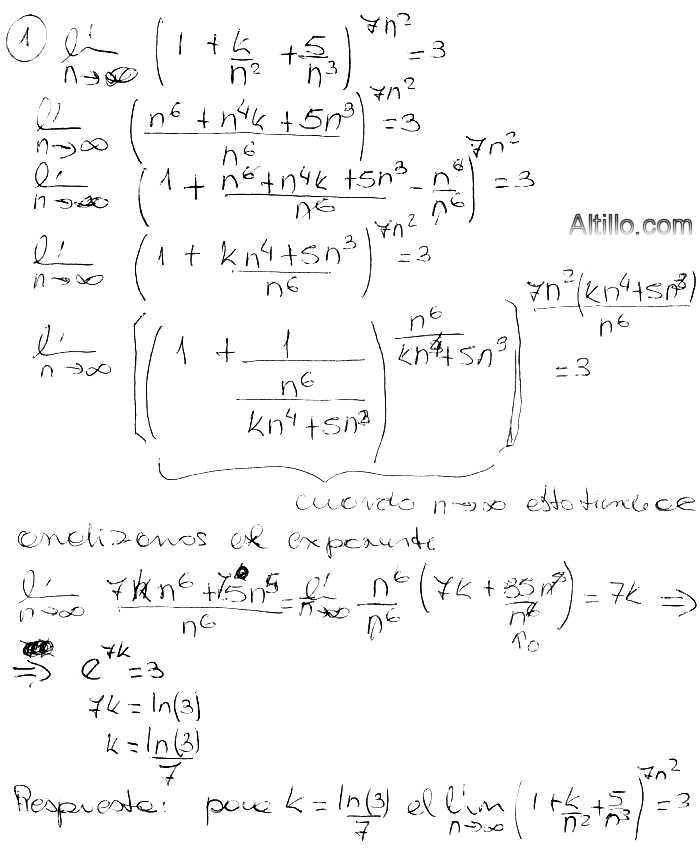 1 lím n→∞ (1 + k/n² + 5/n³)^7n² = 3
lím n→∞ ((n⁶ + n⁴k + 5n³)/n⁶)^7n² = 3
lím n→∞ (1 + (n⁶ + n⁴k + 5n³)/n⁶ - n⁶/n⁶)^7n² = 3
Altillo.com
lím n→∞ (1 + (kn⁴ + 5n³)/n⁶)^7n² = 3
lím n→∞ [(1 + 1/(n⁶/(kn⁴ + 5n³)))^(n⁶/(kn⁴ + 5n³))]^(7n²(kn⁴ + 5n³)/n⁶) = 3
cuando n→∞ esto tiende a e
analizamos el exponente
lím n→∞ (7kn⁶ + 75n⁵)/n⁶ = lím n→∞ n⁶/n⁶ (7k + 35n⁵/n⁶) = 7k ⇒
↑0
⇒ e^7k = 3
7k = ln(3)
k = ln(3)/7
Respuesta: para k = ln(3)/7 el lím n→∞ (1 + k/n² + 5/n³)^7n² = 3